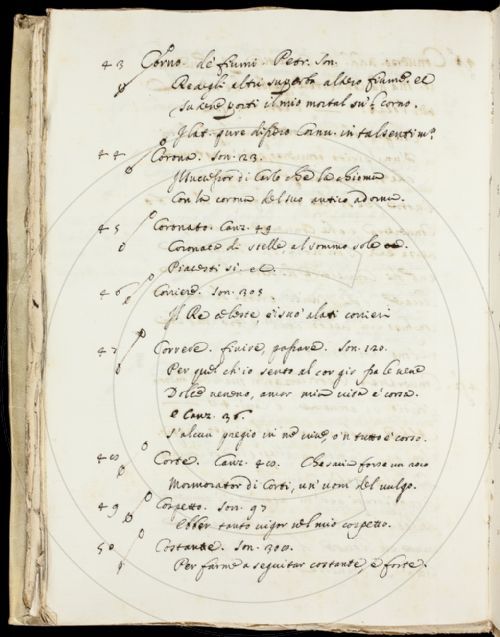 43 Corno. de' fiumi. Petr. Son.
Re degli altri superbo altero fiume. et
su corno.
Il Lat. pure dissero Cornu. in tal sentim.o
44 Corona. Son. 23.
di Carlo che la chioma
Con la corona del suo antico adorna.
45 Coronato. Canz. 49
Coronata di stelle, al sommo sole
Piacesti si. et
46 Corriere. Son. 303
Il Re celeste, i suo' alati corrieri
47 Correre. finire, passare. Son. 120.
Per quel ch'io sento al cor gir fra le vene
Dolce veneno, amor mia vita è corsa.
e Canz. 36.
S'alcun pregio in me vive, o'n tutto è corso.
48 Corte. Canz. 48. Che saria forse un roco
Mormorator di Corti, un' uom del vulgo.
49 Cospetto. Son. 97
Ebber tanto vigor nel mio cospetto.
50 Costante. Son. 300.
Per farme a seguitar costante, e forte.